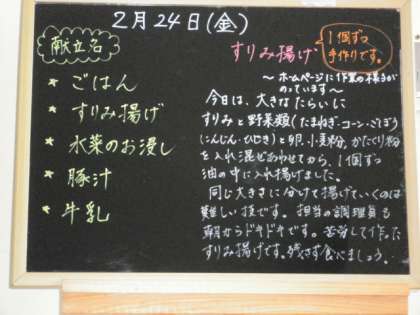 2月24日(金)
献立名
* ごはん
* すりみ揚げ
* 水菜のお浸し
* 豚汁
* 牛乳
すりみ揚げ
1個ずつ
手作りです。
〜ホームページに作業の様子が
のっています〜
今日は、大きなたらいに
すりみと野菜類(たまねぎ・コーン・ごぼう
にんじん・ひじき)と卵、小麦粉、かたくり粉
を入れ混ぜあわせてから、1個ずつ
油の中に入れ揚げました。
同じ大きさに分けて揚げていくのは
難しい技です。担当の調理員も
朝からドキドキです。苦労して作った
すりみ揚げです。残さず食べましょう。